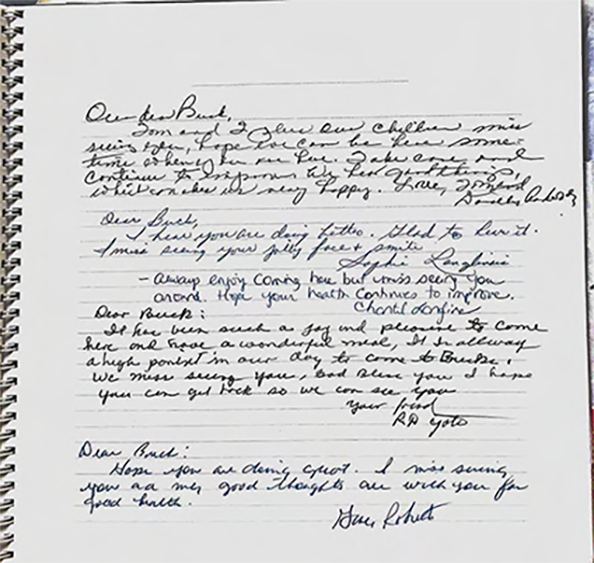 Our dear Buck,
Tom and I plus our children miss
seeing you, hope we can be here some-
time when you are here. Take care and
continue to improve. We hear good things,
which makes us very happy. Love, Tom and
Dear Buck,
I hear you are doing better. Glad to hear it.
I miss seeing your jolly face & smile
Sophie
- Always enjoy coming here but miss seeing you
around. Hope your health continues to improve.
Dear Buck:
It has been such a joy and pleasure to come
here and have a wonderful meal, It is allway
a high point in our day to come to Bucks.
We miss seeing you, God Bless you I hope
you can get back so we can see you
Your friend
RD
Dear Buck:
Hope you are doing great. I miss seeing
you and my good thoughts are with you for
good health.
Robert